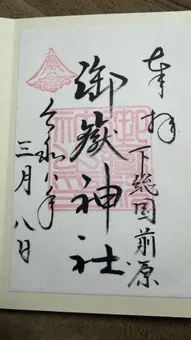 奉拝
下総国前原
御嶽神社
令和年
三月八日